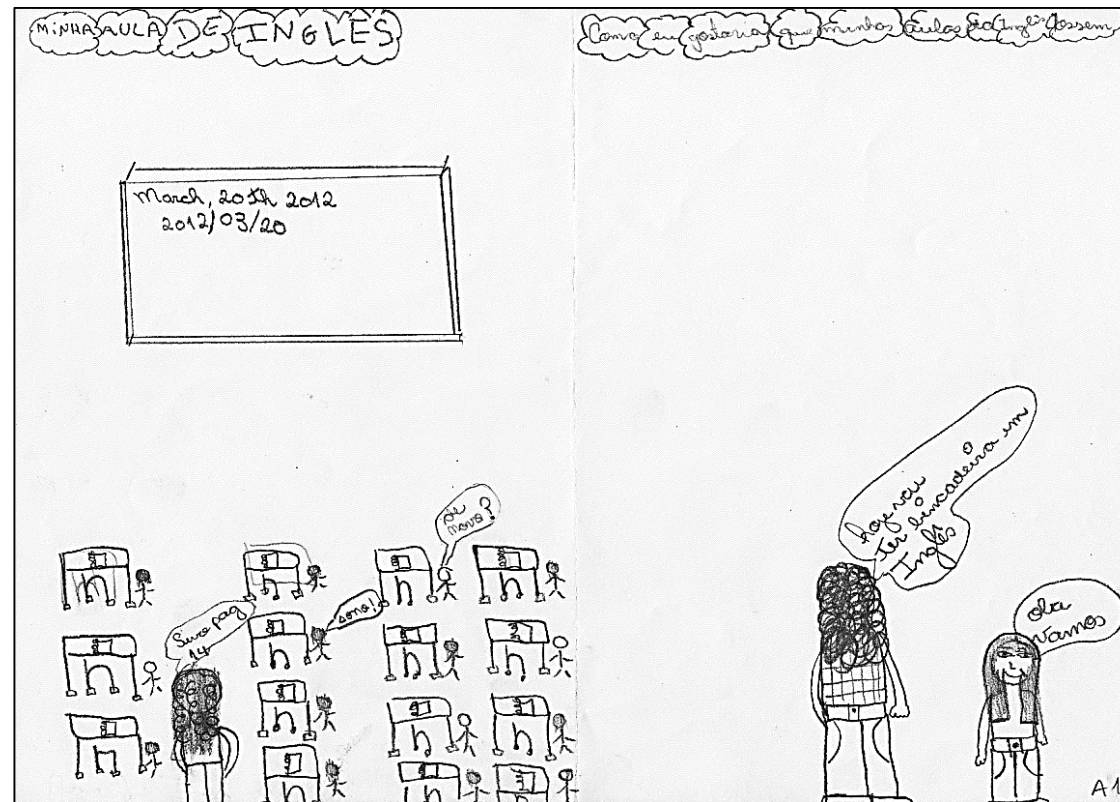 MINHA AULA DE INGLÊS
March, 20th 2012
2012/03/20
de
novo?
sono!
pag
14
Como eu gostaria que minhas aulas de Inglês fossem
hoje vai
ter brincadeira em
Inglês
oba
vamos
A1